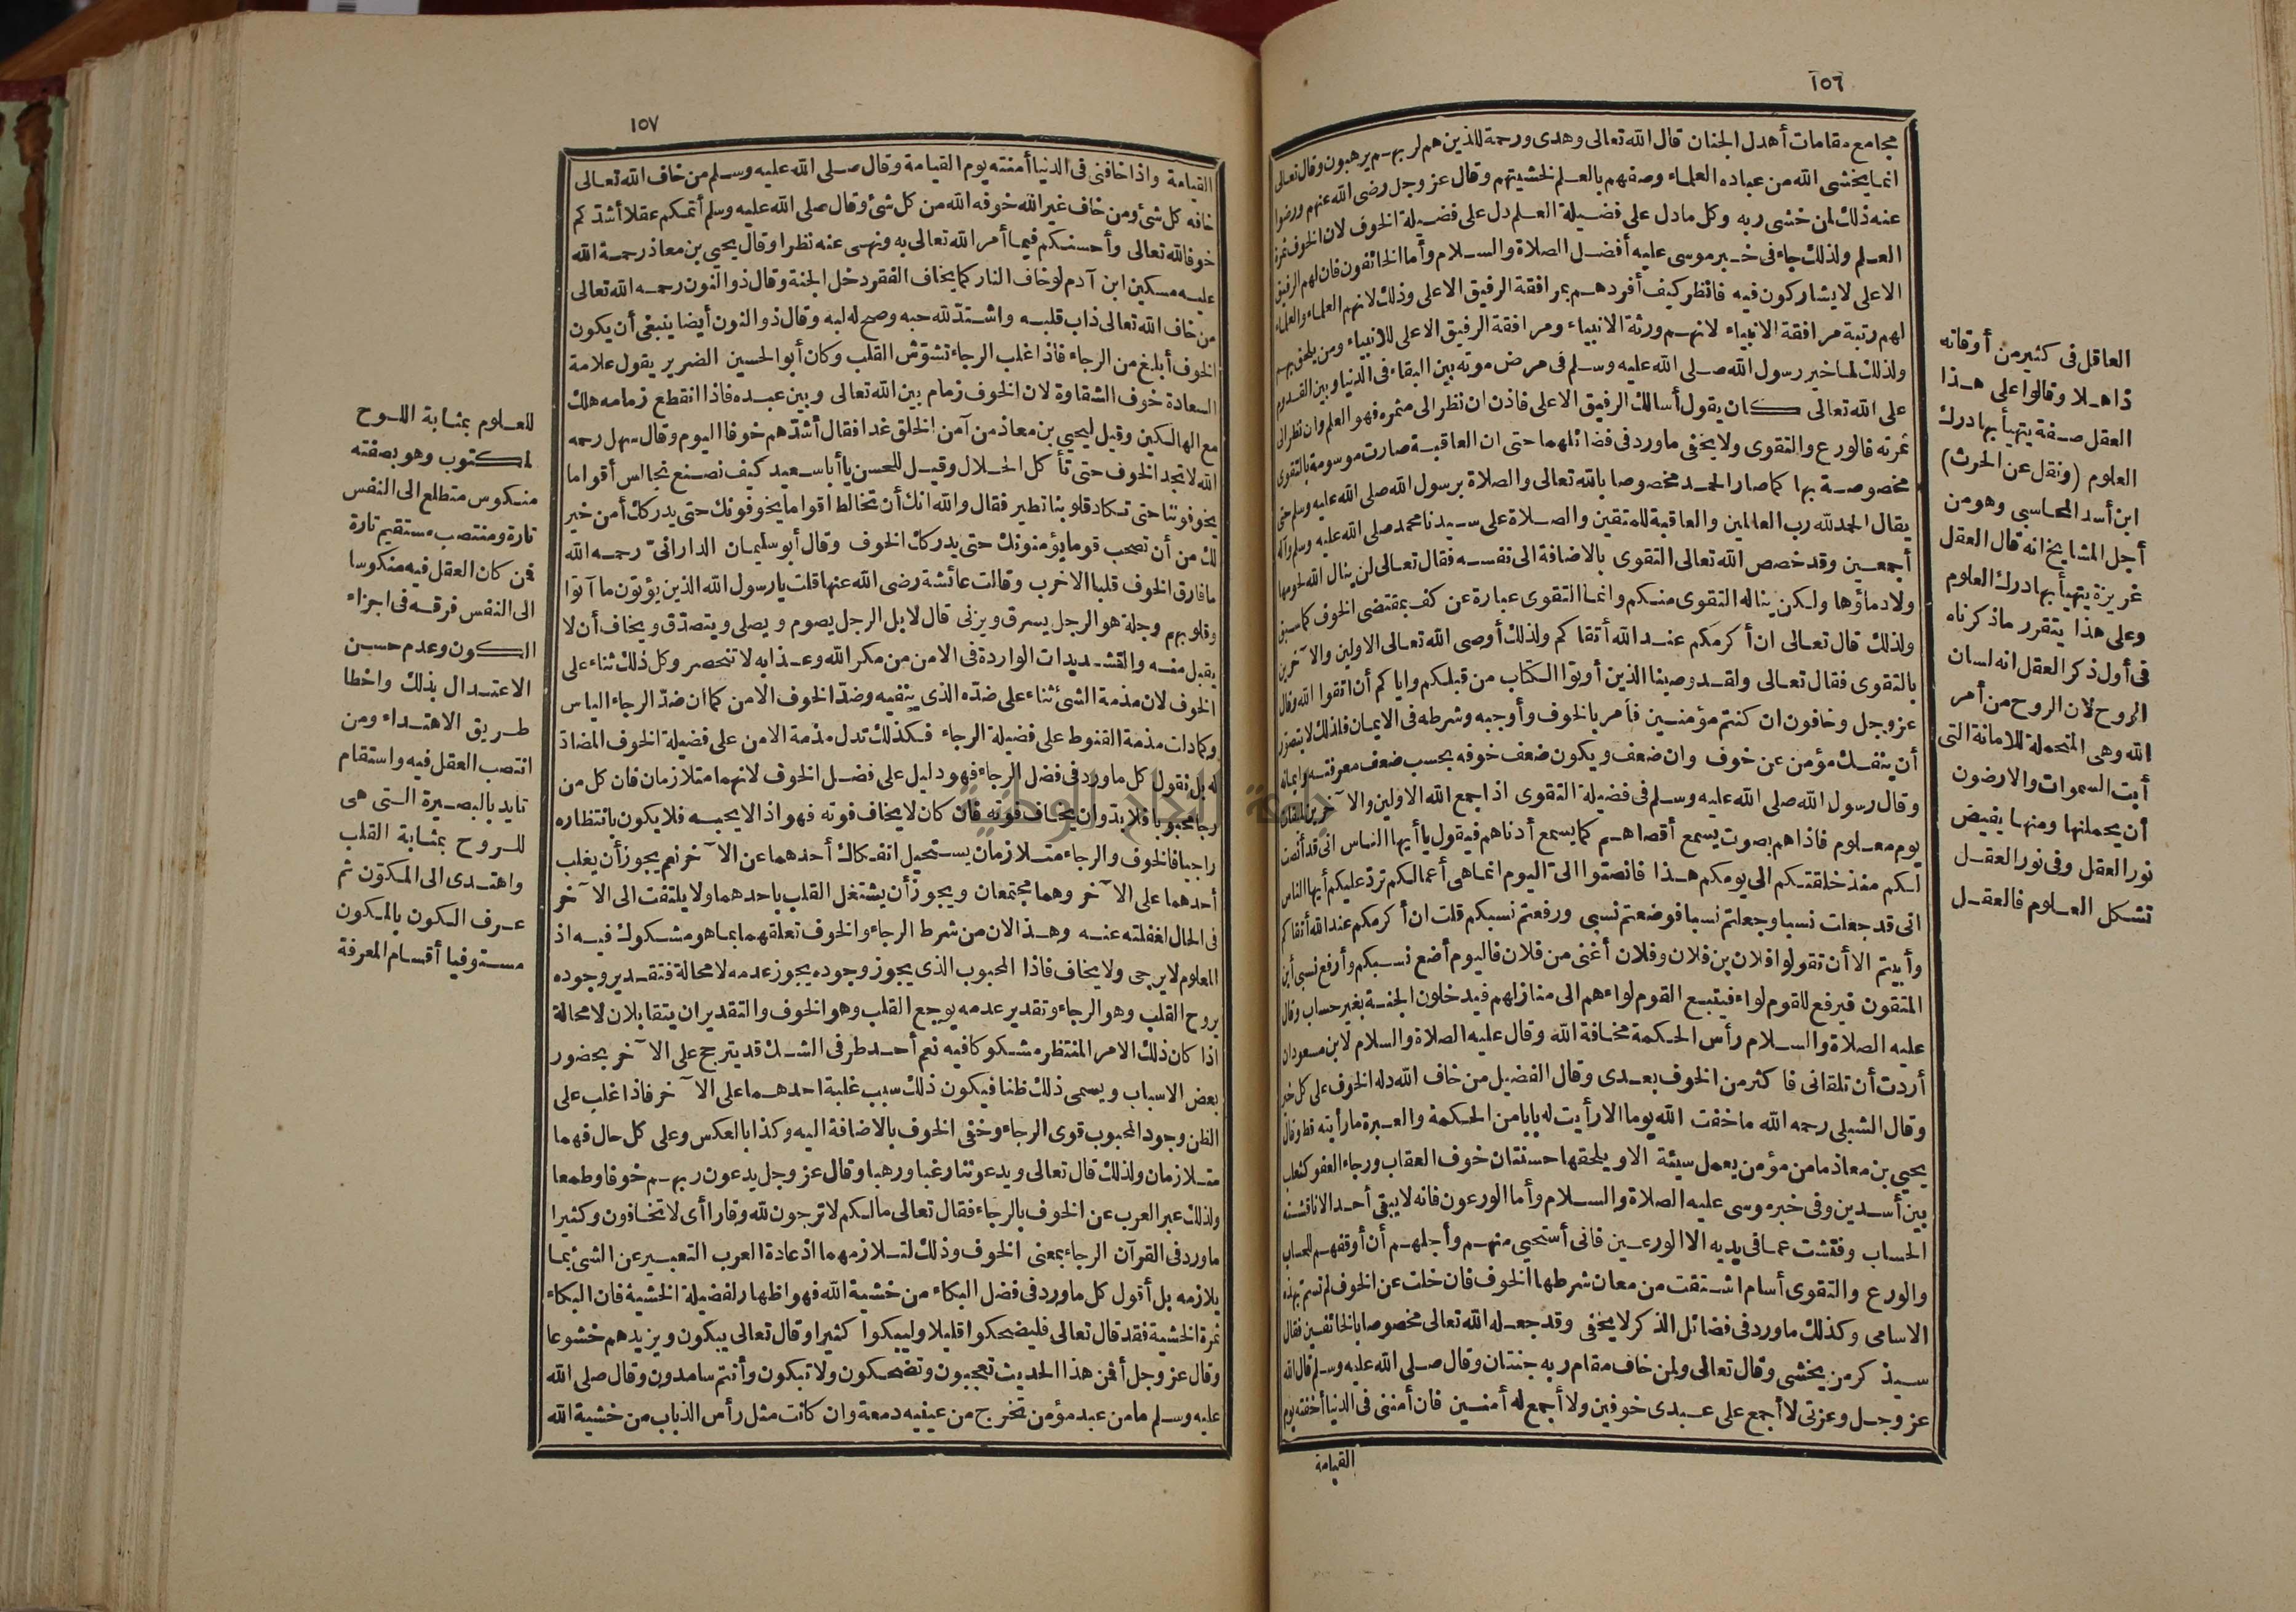 ١٥٦
مجامع مقامات أهل الجنان قال الله تعالى وهدى ورحمة للذين هم لربهم يرهبون وقال تعالى
انما يخشى الله من عباده العلماء وصفهم بالعلم لخشيتهم وقال عز وجل رضى الله عنهم ورضوا
عنه ذلك لمن خشى ربه وكل مادل على فضيلة العلم دل على فضيلة الخوف لان الخوف ثمرة
العلم ولذلك جاء فى خبر موسى عليه أفضل الصلاة والسلام وأما الخائفون فان لهم الرفيق
الاعلى لا يشاركون فيه فانظر كيف أفردهم بمرافقة الرفيق الاعلى وذلك لانهم العلماء والعلماء
لهم رتبة مرافقة الانبياء لانهم ورثة الانبياء ومرافقة الرفيق الاعلى للانبياء ومن يلحق بهم
ولذلك لما خير رسول الله صلى الله عليه وسلم فى مرض موته بين البقاء فى الدنيا وبين القدوم
على الله تعالى كان يقول أسألك الرفيق الاعلى فاذن ان نظر الى مثمره فهو العلم وان نظر الى
ثمرته فالورع والتقوى ولا يخفى ماورد فى فضائلهما حتى ان العاقبة صارت موسومة بالتقوى
مخصوصة بها كما صار الحمد مخصوصا بالله تعالى والصلاة برسول الله صلى الله عليه وسلم حتى
يقال الحمد لله رب العالمين والعاقبة للمتقين والصلاة على سيدنا محمد صلى الله عليه وسلم وآله
أجمعين وقد خصص الله تعالى التقوى بالاضافة الى نفسه فقال تعالى لن ينال الله لحومها
ولا دماؤها ولكن يناله التقوى منكم وانما التقوى عبارة عن كف بمقتضى الخوف كما سبق
ولذلك قال تعالى ان أكرمكم عند الله أتقاكم ولذلك أوصى الله تعالى الاولين والآخرين
بالتقوى فقال تعالى ولقد وصينا الذين أوتوا الكتاب من قبلكم واياكم أن اتقوا الله وقال
عز وجل وخافون ان كنتم مؤمنين فأمر بالخوف وأوجبه وشرطه فى الايمان فلذلك لا يتصور
أن ينفك مؤمن عن خوف وان ضعف ويكون ضعف خوفه بحسب ضعف معرفته وايمانه
وقال رسول الله صلى الله عليه وسلم فى فضيلة التقوى اذا جمع الله الاولين والآخرين لميقات
يوم معلوم فاذا هم بصوت يسمع أقصاهم كما يسمع أدناهم فيقول يا أيها الناس انى قد أنصت
لكم منذ خلقتكم الى يومكم هذا فانصتوا الى اليوم انما هى أعمالكم ترد عليكم أيها الناس
انى قد جعلت نسبا وجعلتم نسبا فوضعتم نسبى ورفعتم نسبكم قلت ان أكرمكم عند الله أتقاكم
وأبيتم الا أن تقولوا فلان بن فلان وفلان أغنى من فلان فاليوم أضع نسبكم وأرفع نسبى أين
المتقون فيرفع للقوم لواء فيتبع القوم لواءهم الى منازلهم فيدخلون الجنة بغير حساب وقال
عليه الصلاة والسلام رأس الحكمة مخافة الله وقال عليه الصلاة والسلام لابن مسعود ان
أردت أن تلقانى فاكثر من الخوف بعدى وقال الفضيل من خاف الله دله الخوف على كل خير
وقال الشبلى رحمه الله ما خفت الله يوما الا رأيت له بابا من الحكمة والعبرة ما رأيته قط وقال
يحيى بن معاذ ما من مؤمن يعمل سيئة الا ويلحقها حسنتان خوف العقاب ورجاء العفو كثعلب
بين أسدين وفى خبر موسى عليه الصلاة والسلام وأما الورعون فانه لا يبقى أحد الا ناقشته
الحساب وفتشت عما فى يديه الا الورعين فانى أستحيى منهم وأجلهم أن أوقفهم للحساب
والورع والتقوى أسام اشتقت من معان شرطها الخوف فان خلت عن الخوف لم تسم بهذه
الاسامى وكذلك ماورد فى فضائل الذكر لا يخفى وقد جعله الله تعالى مخصوصا بالخائفين فقال
سيذكر من يخشى وقال تعالى ولمن خاف مقام ربه جنتان وقال صلى الله عليه وسلم قال الله
عز وجل وعزتى لا أجمع على عبدى خوفين ولا أجمع له أمنين فان أمننى فى الدنيا أخفته يوم
القيامة
العاقل فى كثير من أوقاته
ذاهلا وقالوا على هذا
العقل صفة يتهيأ بها درك
العلوم (ونقل عن الحرث)
ابن أسد المحاسبى وهو من
أجل المشايخ انه قال العقل
غريزة يتهيأ بها درك العلوم
وعلى هذا يتقرر ما ذكرناه
فى أول ذكر العقل انه لسان
الروح لان الروح من أمر
الله وهى المتحملة للامانة التى
أبت السموات والارضون
أن يحملنها ومنها يفيض
نور العقل وفى نور العقل
تشكل العلوم فالعقل
١٥٧
القيامة واذا خافنى فى الدنيا أمنته يوم القيامة وقال صلى الله عليه وسلم من خاف الله تعالى
خافه كل شئ ومن خاف غير الله خوفه الله من كل شئ وقال صلى الله عليه وسلم أتمكم عقلا أشدكم
خوفا لله تعالى وأحسنكم فيما أمر الله تعالى به ونهى عنه نظرا وقال يحيى بن معاذ رحمة الله
عليه مسكين ابن آدم لو خاف النار كما يخاف الفقر دخل الجنة وقال ذو النون رحمه الله تعالى
من خاف الله تعالى ذاب قلبه واشتد لله حبه وصح له لبه وقال ذو النون أيضا ينبغى أن يكون
الخوف أبلغ من الرجاء فاذا غلب الرجاء تشوش القلب وكان أبو الحسين الضرير يقول علامة
السعادة خوف الشقاوة لان الخوف زمام بين الله تعالى وبين عبده فاذا انقطع زمامه هلك
مع الهالكين وقيل ليحيى بن معاذ من آمن الخلق غدا فقال أشدهم خوفا اليوم وقال سهل رحمه
الله لا تجد الخوف حتى تأكل الحلال وقيل للحسن يا أبا سعيد كيف نصنع نجالس أقواما
يخوفوننا حتى تكاد قلوبنا تطير فقال والله انك أن تخالط اقواما يخوفونك حتى يدركك أمن خير
لك من أن تصحب قوما يؤمنونك حتى يدركك الخوف وقال أبو سليمان الدارانى رحمه الله
ما فارق الخوف قلبا الا خرب وقالت عائشة رضى الله عنها قلت يا رسول الله الذين يؤتون ما آتوا
وقلوبهم وجلة هو الرجل يسرق ويزنى قال لا بل الرجل يصوم ويصلى ويتصدق ويخاف أن لا
يقبل منه والتشديدات الواردة فى الامن من مكر الله وعذابه لا تنحصر وكل ذلك ثناء على
الخوف لان مذمة الشئ ثناء على ضده الذى ينفيه وضد الخوف الامن كما أن ضد الرجاء الياس
وكما دلت مذمة القنوط على فضيلة الرجاء فكذلك تدل مذمة الامن على فضيلة الخوف المضاد
له بل نقول كل ماورد فى فضل الرجاء فهو دليل على فضل الخوف لانهما متلازمان فان كل من
رجا محبوبا فلا بد وان يخاف فوته فان كان لا يخاف فوته فهو اذا لا يحبه فلا يكون بانتظاره
راجيا فالخوف والرجاء متلازمان يستحيل انفكاك أحدهما عن الآخر نعم يجوز أن يغلب
أحدهما على الآخر وهما مجتمعان ويجوز أن يشتغل القلب باحدهما ولا يلتفت الى الآخر
فى الحال لغفلته عنه وهذا لان من شرط الرجاء والخوف تعلقهما بما هو مشكوك فيه اذ
المعلوم لا يرجى ولا يخاف فاذا المحبوب الذى يجوز وجوده يجوز عدمه لا محالة فتقدير وجوده
يروح القلب وهو الرجاء وتقدير عدمه يوجع القلب وهو الخوف والتقديران يتقابلان لا محالة
اذا كان ذلك الامر المنتظر مشكوكا فيه نعم أحد طرفى الشك قد يترجح على الآخر بحضور
بعض الاسباب ويسمى ذلك ظنا فيكون ذلك سبب غلبة احدهما على الآخر فاذا غلب على
الظن وجود المحبوب قوى الرجاء وخفى الخوف بالاضافة اليه وكذا بالعكس وعلى كل حال فهما
متلازمان ولذلك قال تعالى ويدعوننا رغبا ورهبا وقال عز وجل يدعون ربهم خوفا وطمعا
ولذلك عبر العرب عن الخوف بالرجاء فقال تعالى مالكم لا ترجون لله وقارا أى لا تخافون وكثيرا
ماورد فى القرآن الرجاء بمعنى الخوف وذلك لتلازمهما اذ عادة العرب التعبير عن الشئ بما
يلازمه بل أقول كل ماورد فى فضل البكاء من خشية الله فهو اظهار لفضيلة الخشية فان البكاء
ثمرة الخشية فقد قال تعالى فليضحكوا قليلا وليبكوا كثيرا وقال تعالى يبكون ويزيدهم خشوعا
وقال عز وجل أفمن هذا الحديث تعجبون وتضحكون ولا تبكون وأنتم سامدون وقال صلى الله
عليه وسلم ما من عبد مؤمن تخرج من عينيه دمعة وان كانت مثل رأس الذباب من خشية الله
للعلوم بمثابة اللوح
المكتوب وهو بصفته
منكوس متطلع الى النفس
تارة ومنتصب مستقيم تارة
فمن كان العقل فيه منكوسا
الى النفس فرقه فى اجزاء
الكون وعدم حسن
الاعتدال بذلك واخطا
طريق الاهتداء ومن
انتصب العقل فيه واستقام
تايد بالبصيرة التى هى
للروح بمثابة القلب
واهتدى الى المكون ثم
عرف الكون بالمكون
مستوفيا أقسام المعرفة